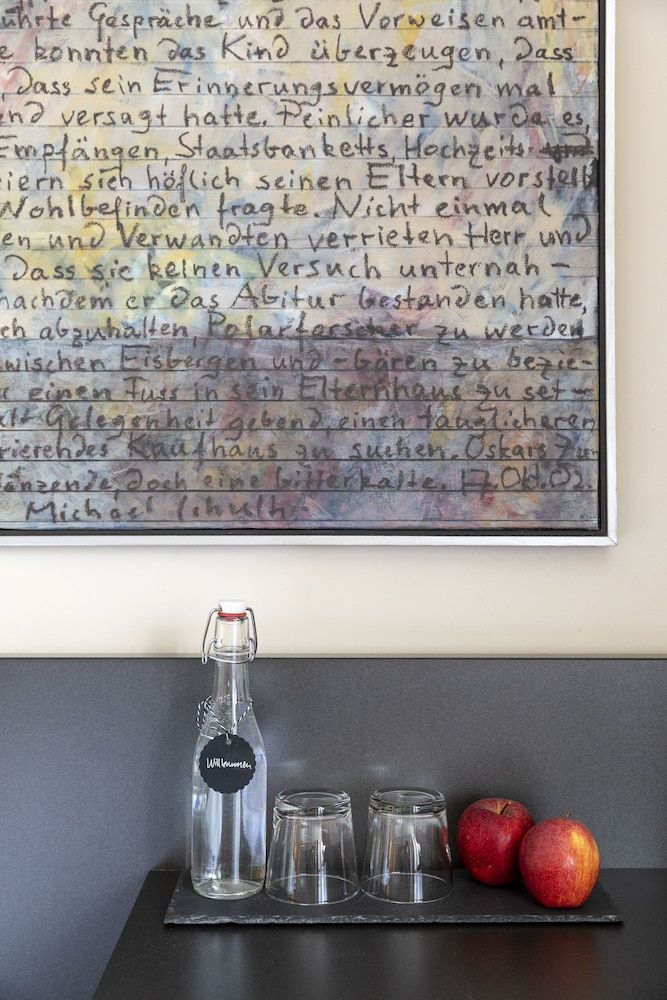 ührte Gespräche und das Vorweisen amt-
e konnten das Kind überzeugen, dass
, dass sein Erinnerungsvermögen mal
end versagt hatte. Peinlicher wurde es,
Empfängen, Staatsbanketts, Hochzeits
eiern sich höflich seinen Eltern vorstell
Wohlbefinden fragte. Nicht einmal
en und Verwandten verrieten Herr und
Dass sie keinen Versuch unternah-
nachdem er das Abitur bestanden hatte,
ch abzuhalten, Polarforscher zu werden
wischen Eisbergen und -bären zu bezie-
einen Fuss in sein Elternhaus zu set-
alt Gelegenheit gebend, einen tauglicheren
rierendes Kaufhaus zu suchen. Oskars Zun
änzende, doch eine bitterkalte. 17. Okt. 02.
Michael
Willkommen